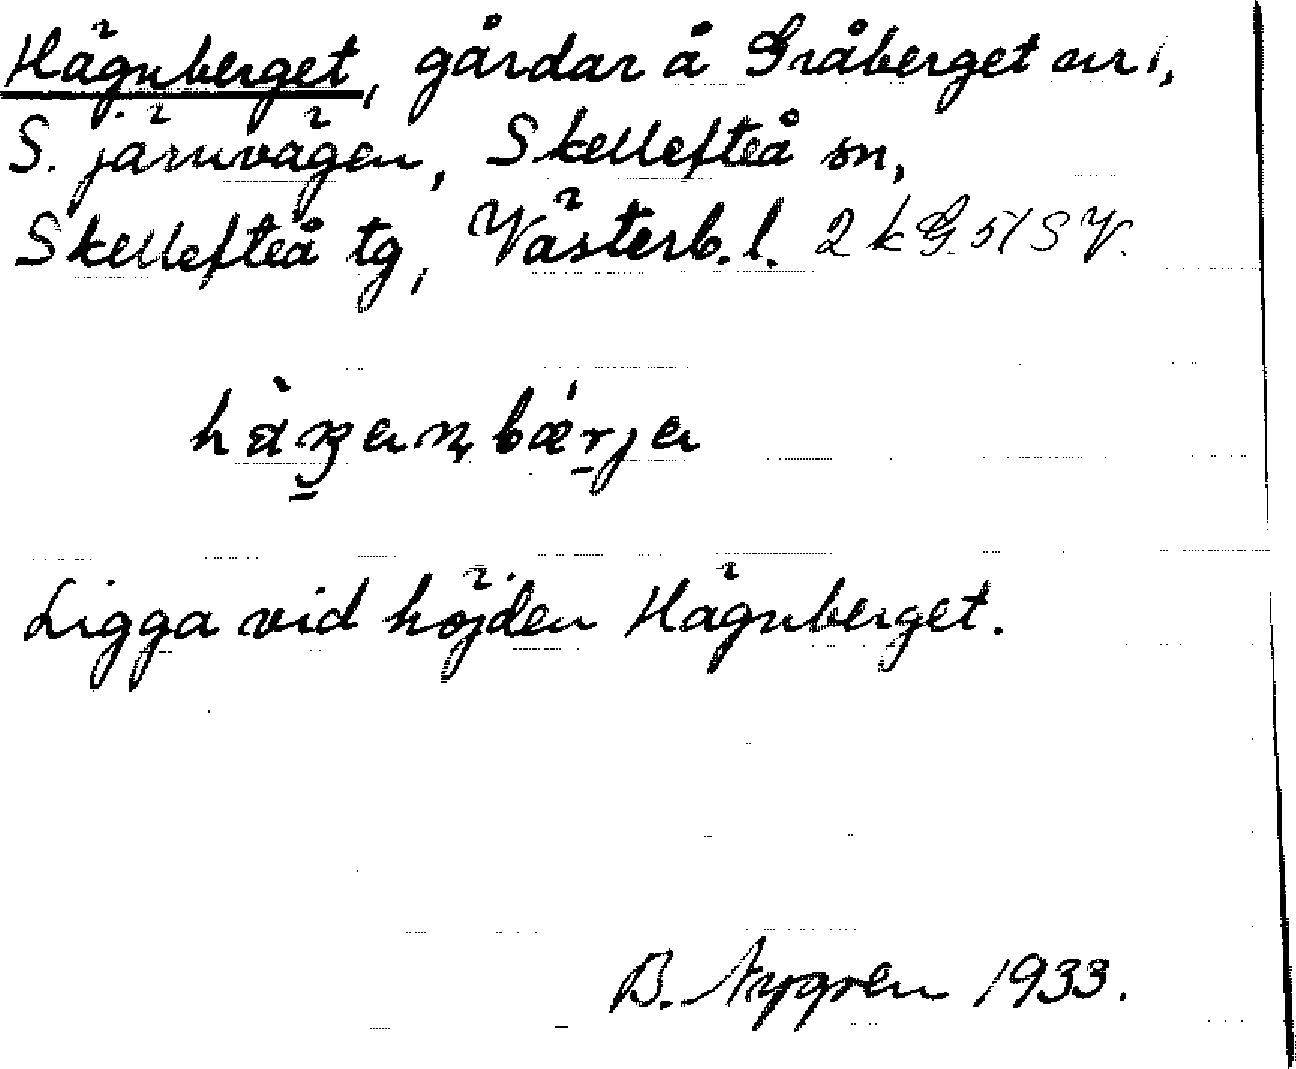 Hägnberget, gårdar å Gråberget nr 1,
S. järnvägen, Skellefteå sn,
Skellefteå tg, Västerb. l. 2 k G 51 S V.
Ligga vid höjden Hägnberget.
B. Nygren 1933.